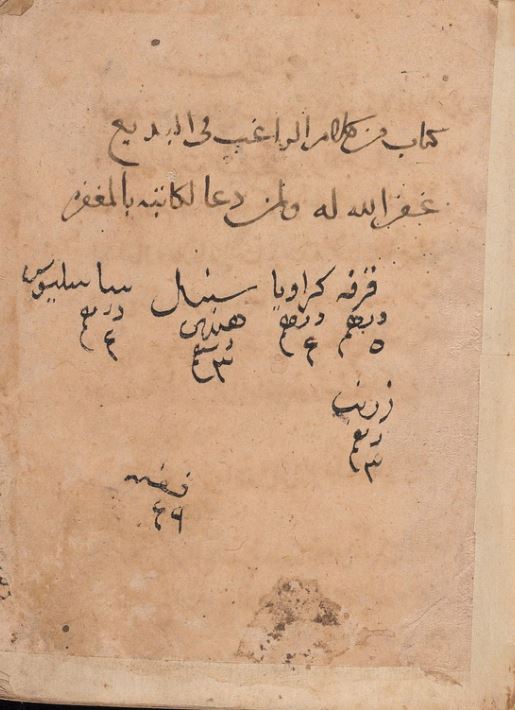 كتاب من كلام الراغب في البديع
غفر الله له ولمن دعا لكاتبه بالمغفره
قرفه كراويا سنبل ساساليوس
درهم درهم هندي درهم
٥ ٤ ٣ ٤
زرنب
درهم
٣